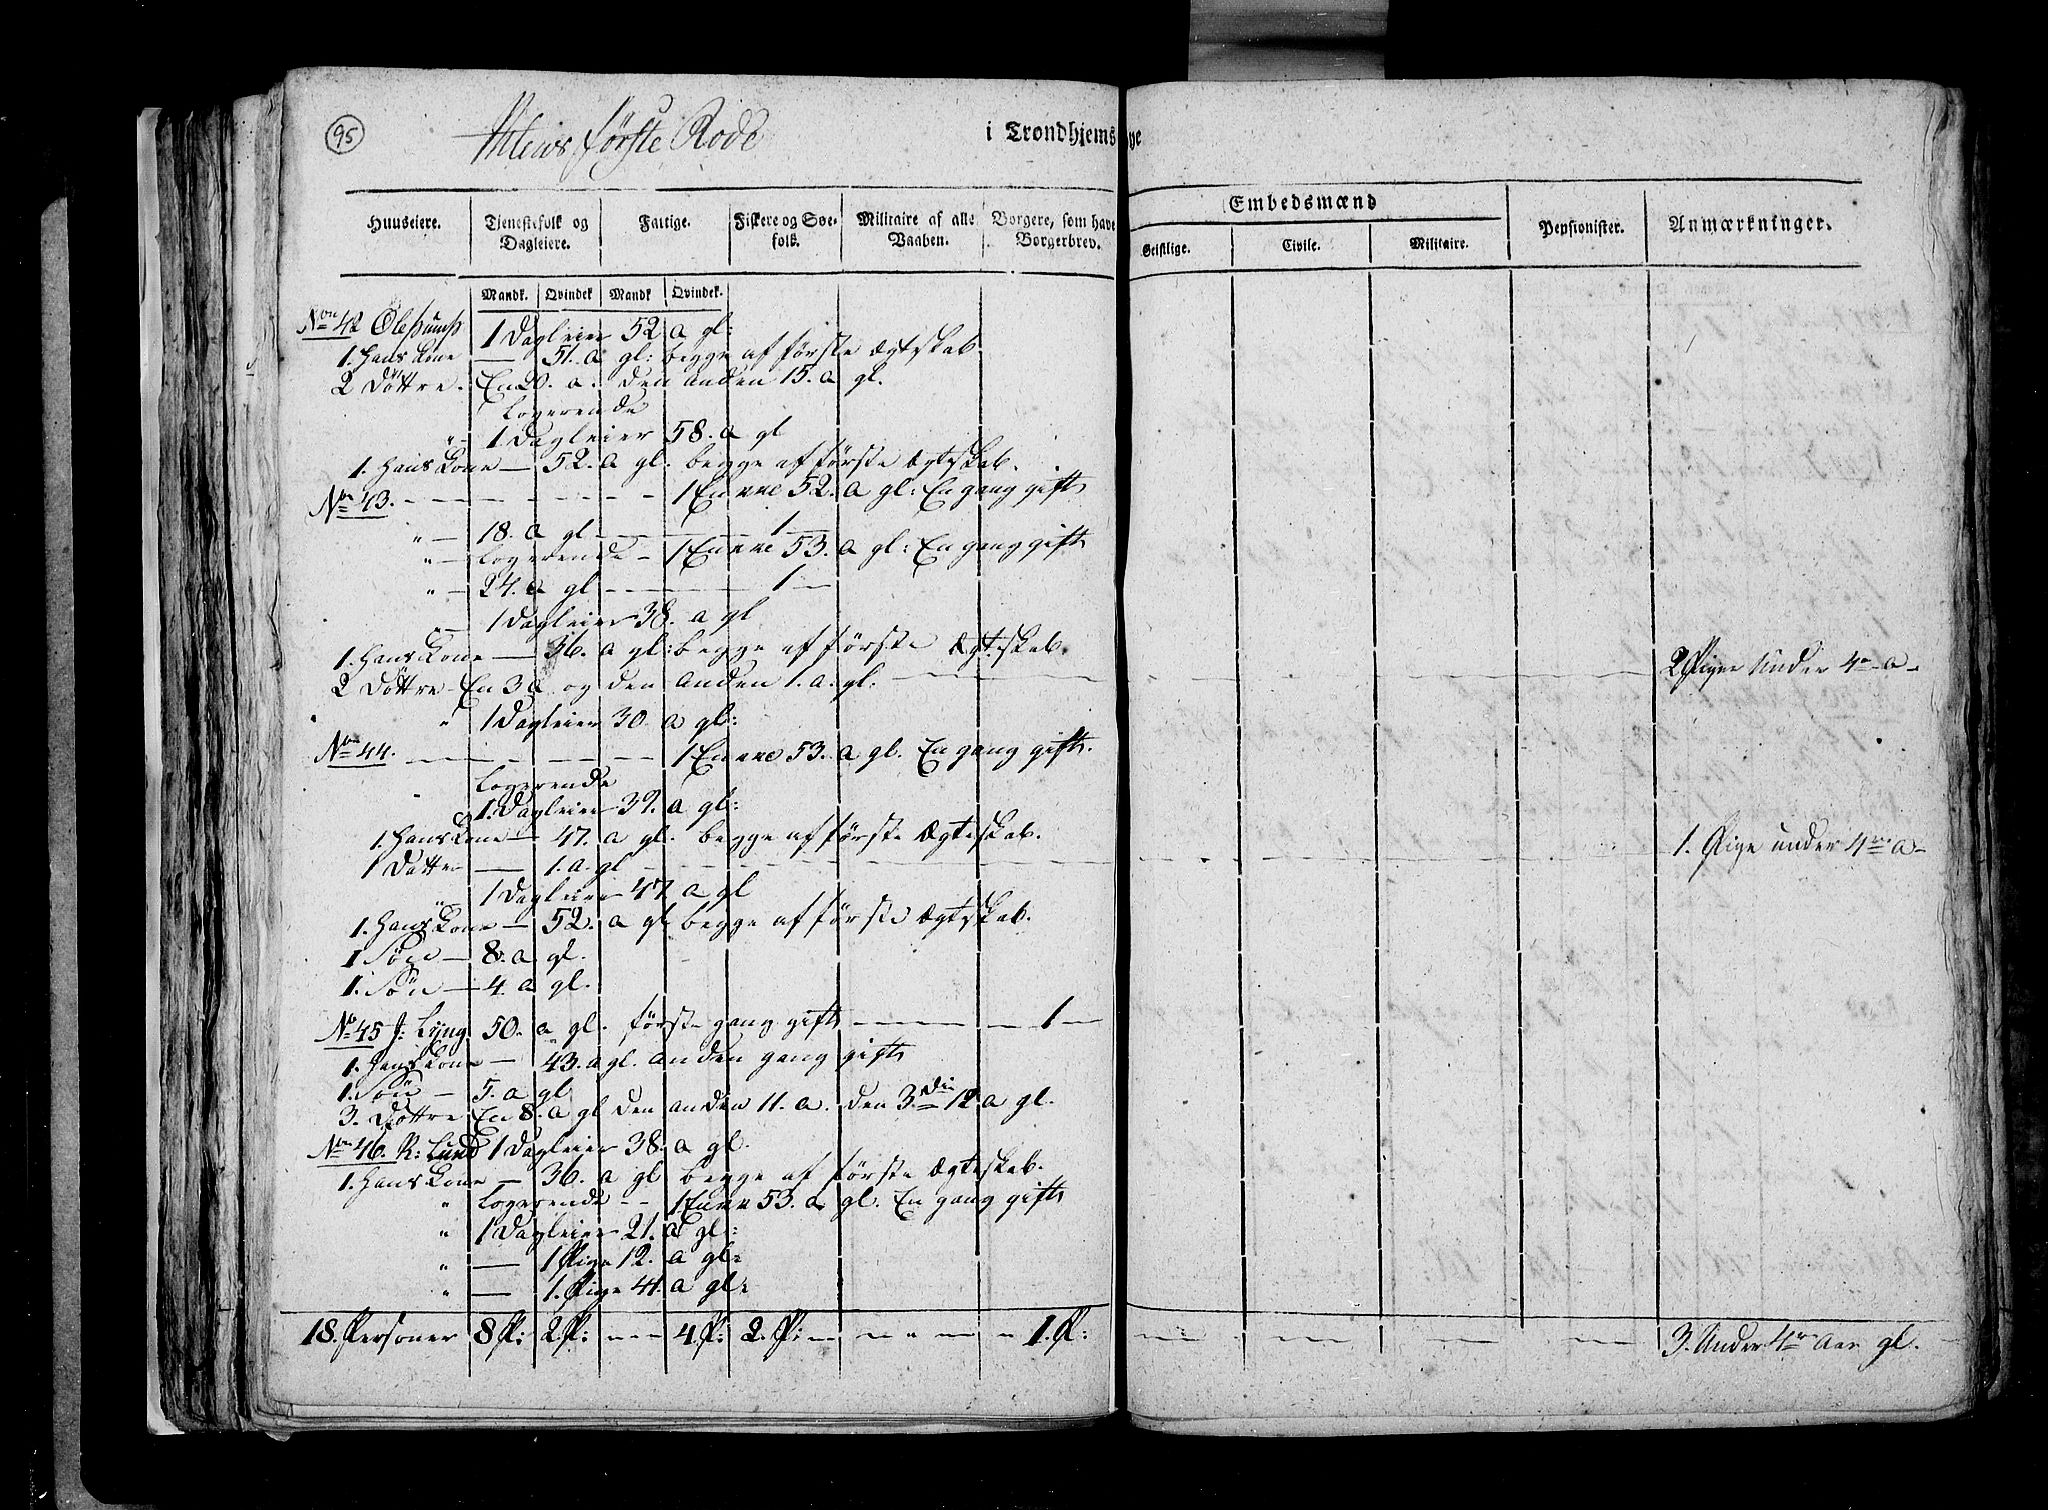 95
første Rode i Trondhiems Bye
Huuseiere. Tienestefolk og Dagleiere. Fattige. Fiskere og Søefolk. Militaire af alle Vaaben. Borgere, som have Borgerbrev. Embedsmænd Pensionister. Anmærkninger.
Geistlige. Civile. Militaire.
Mandk. Qvindek. Mandk. Qvindek.
No 42 1 Dagleier 52 a gl:
1. Hans Kone — 51. a gl: begge af første Ægteskab
2 Døttre. En 20. a. den anden 15. a gl.
Logerende
" 1 Dagleier 58. a gl
1. Hans Kone — 52. a gl. begge af første Ægteskab.
No 43. — — — 1 Enke 52. a gl: En gang gift
" — 18. a gl — — — 1 —
" — Logerende — 1 Enke 53. a gl: En gang gift
" — 24. a gl — — — 1 —
" — 1 Dagleier 38. a gl
1. Hans Kone — 36. a gl: begge af første Ægteskab.
2 Døttre En 3 a og den anden 1. a. gl. — — — 2 Piger under 4re a —
" 1 Dagleier 30. a gl:
No 44. — — — 1 Enke 53. a gl. En gang gift.
Logerende
1. Dagleier 32. a gl:
1. Hans Kone — 47. a gl. begge af første Ægteskab.
1 Datter — 1. a. gl — — — 1. Pige under 4re a —
" 1 Dagleier 47 a gl
1. Hans Kone — 52. a gl begge af første Ægteskab.
1 Søn — 8. a gl.
1. Søn — 4. a gl.
No 45 J: Lÿng. 50. a gl. første gang gift — — — 1 —
1. Hans Kone — 43. a gl. anden gang gift
1. Søn — 5. a gl
3. Døttre En 8. a gl den anden 11. a. den 3die 12 a gl.
No 46. R: Lund 1 Dagleier 38. a gl.
1. Hans Kone — 36. a gl begge af første Ægteskab.
" Logerende — 1 Enke 53. a gl. En gang gift
" 1 Dagleier 21. a gl:
" — 1 Pige 12. a gl:
" — 1. Pige 41. a gl:
18. Personer 8 P: 2 P: — — 4. P: 2. P: — — — — 1. P: — — — — 3. Under 4re Aar gl.